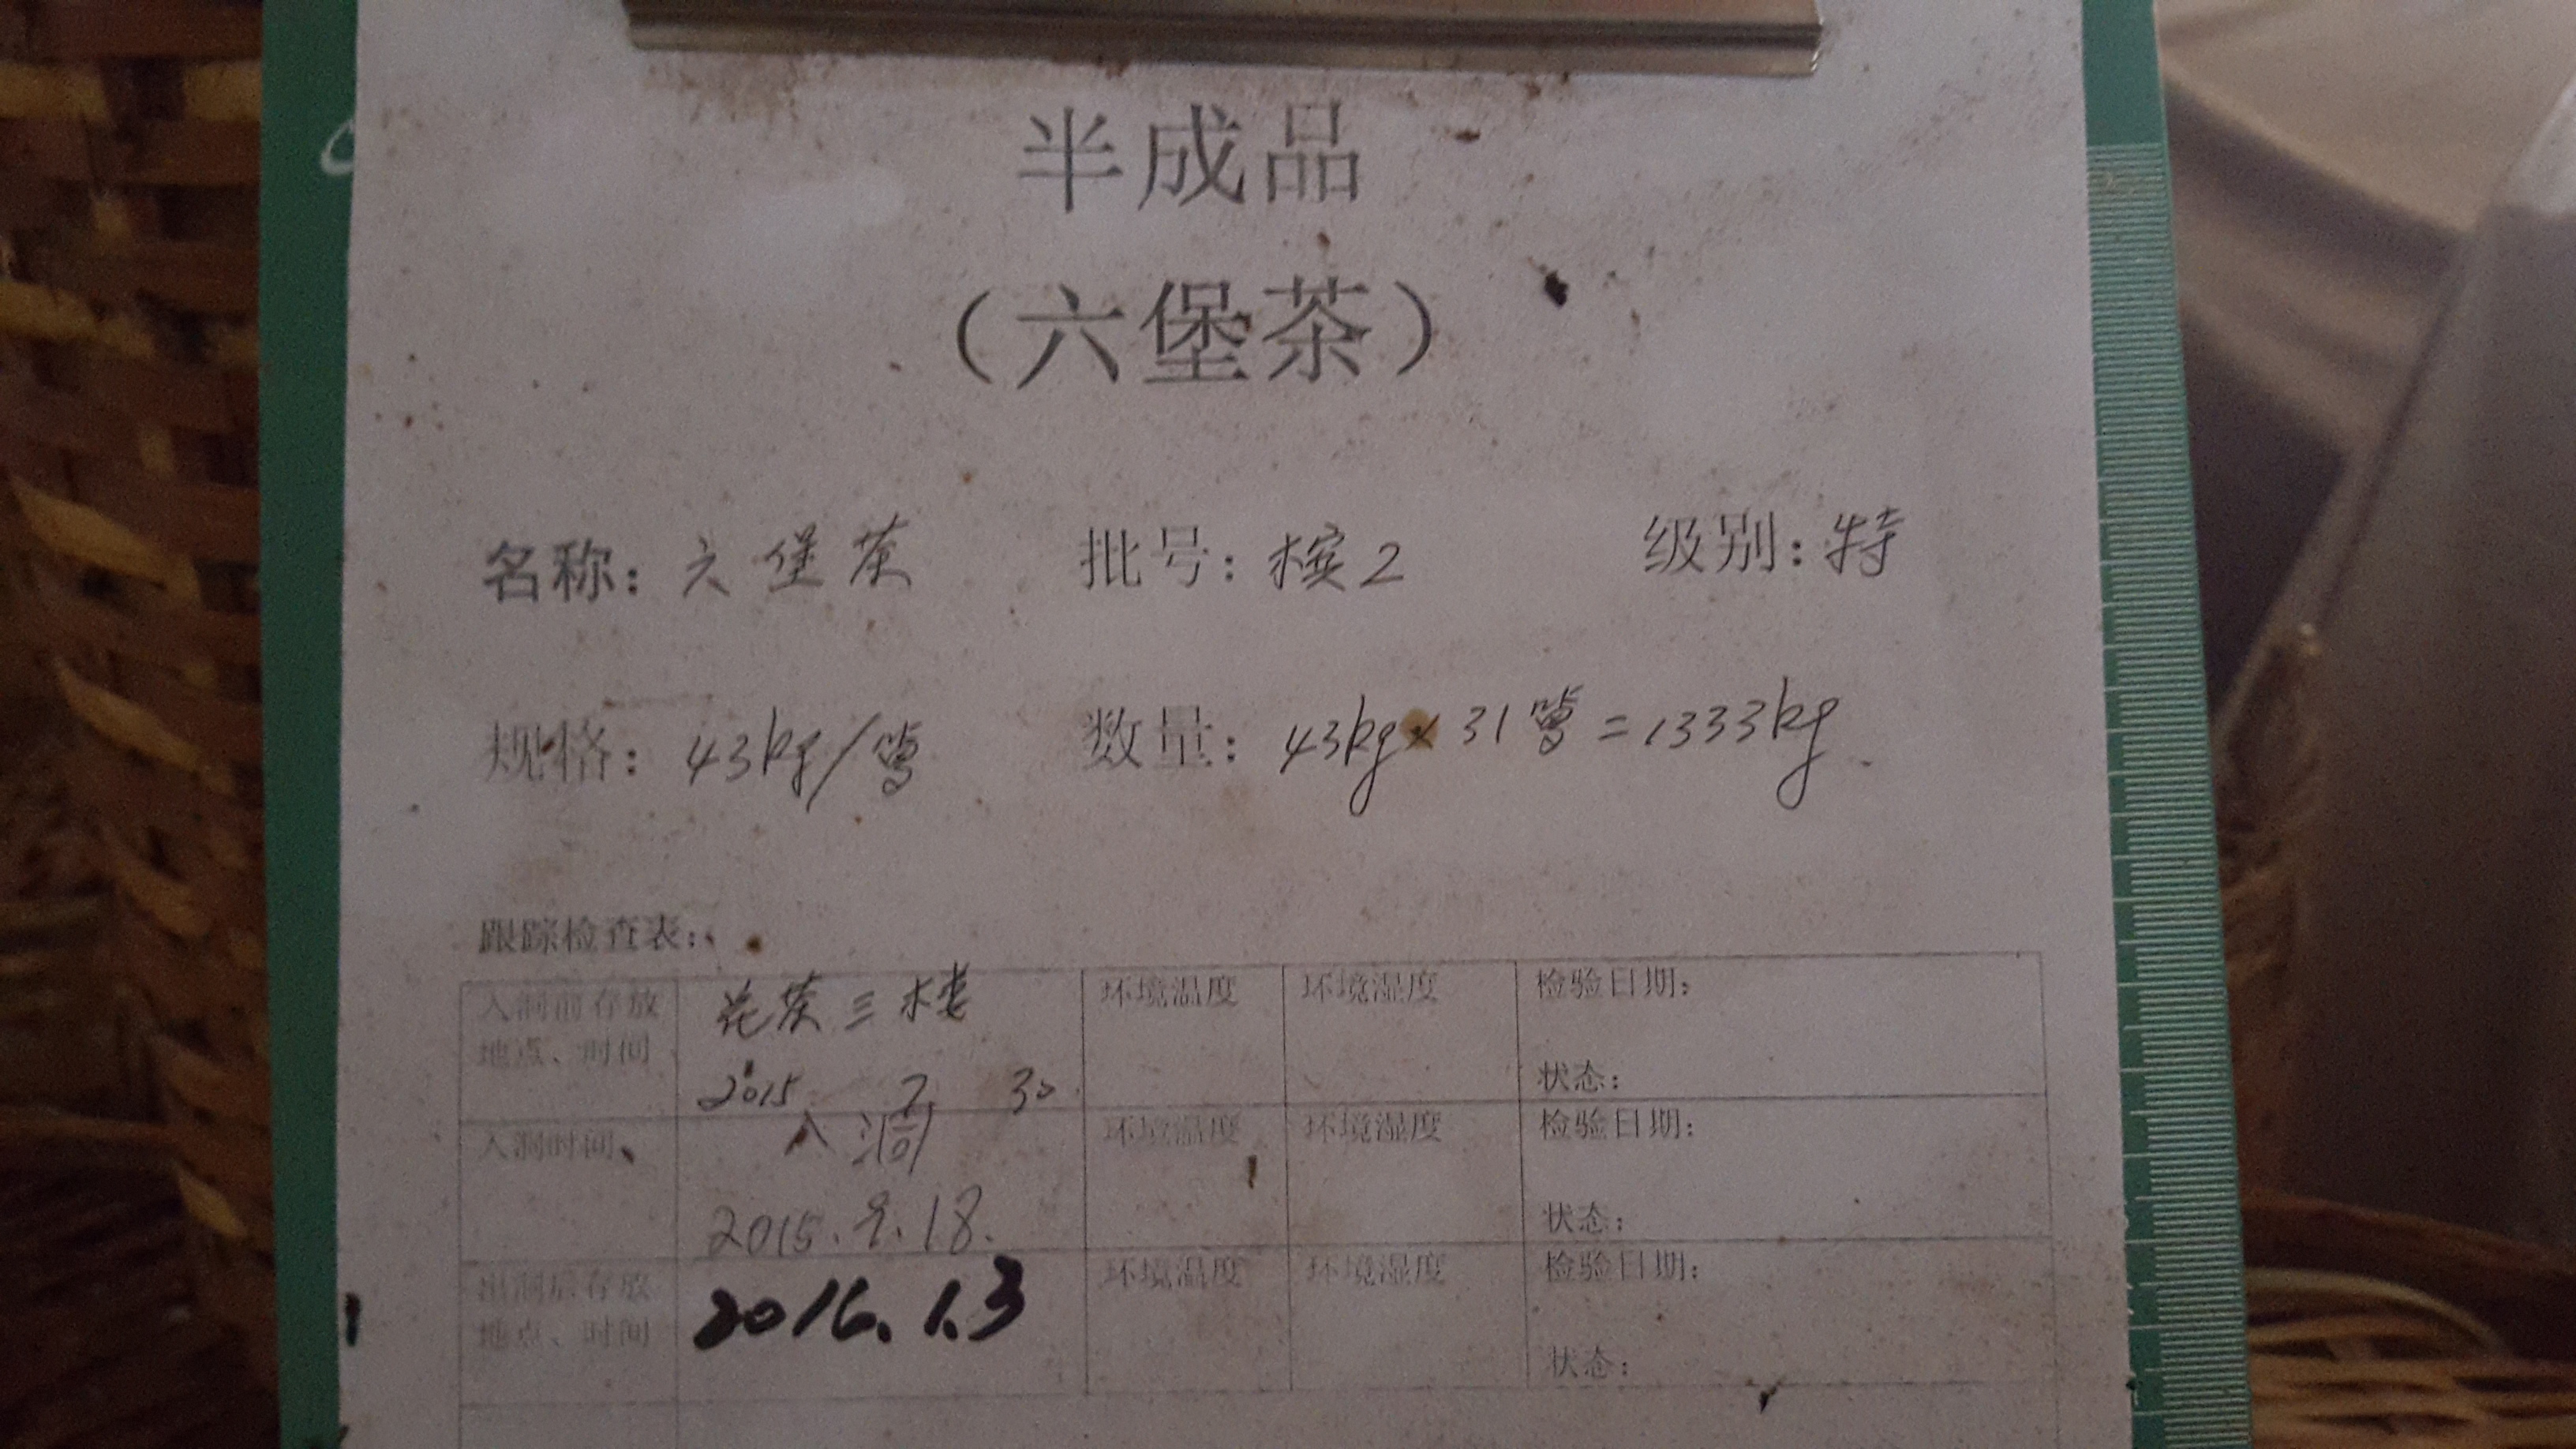 半成品
（六堡茶）
名称：六堡茶 批号：槟2 级别：特
规格：43kg/箩 数量：43kg×31箩=1333kg
跟踪检查表：
入洞前存放地点、时间 花茶三楼 环境温度 环境湿度 检验日期：
2015 7 30 状态：
入洞时间、 入洞 环境温度 环境湿度 检验日期：
2015.9.18. 状态：
出洞后存放地点、时间 2016.1.3 环境温度 环境湿度 检验日期：
状态：